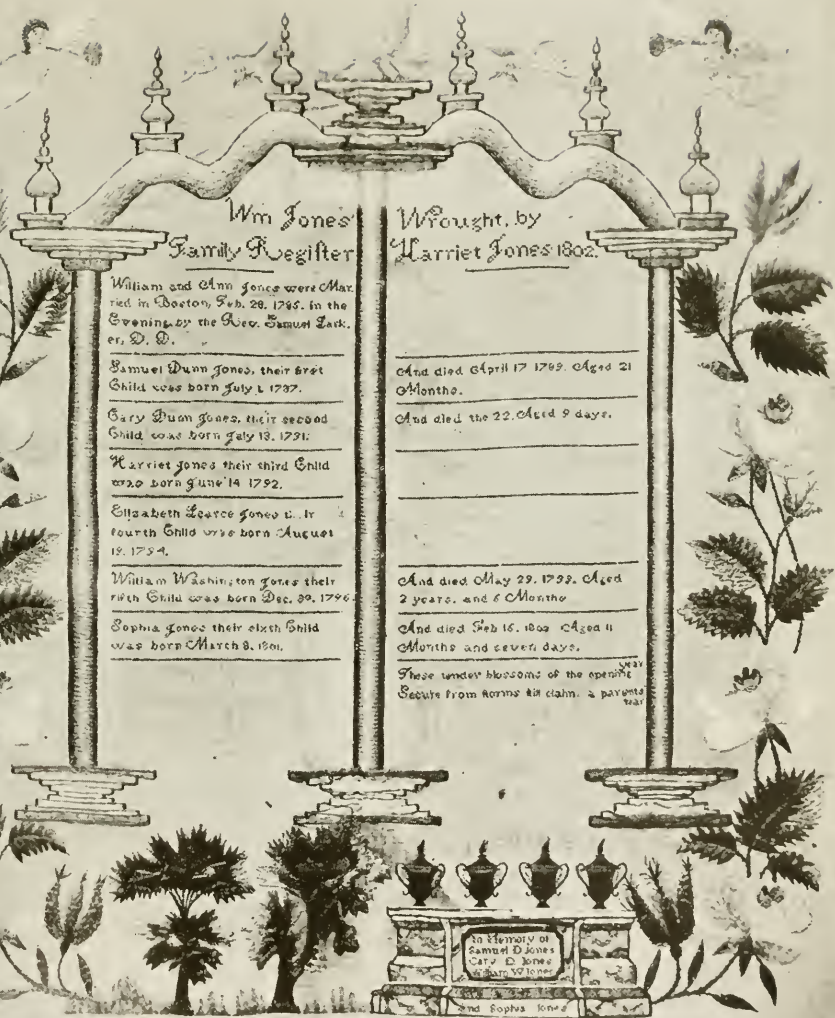 Wm Jones'
Family Register
William and Ann Jones were Mar,
ried in Boston, Feb. 28. 1785. in the
Evening, by the Rev. Samuel Park,
er, D. D.
Samuel Dunn Jones, their first
Child was born July 1, 1787.
Cary Dunn Jones, their second
Child was born July 13, 1791.
Harriet Jones their third Child
was born June 14 1792.
Elisabeth Jones
fourth Child was born August
19, 1794.
William Washington Jones their
fifth Child was born Dec. 1796
Sophia Jones their sixth Child
was born March 8, 1801.
Wrought, by
Harriet Jones 1802.
And died April 17 1789. Aged 21
Months.
And died the 22. Aged 9 days.
And died May 29. 1799. Aged
2 years. and 5 Months
And died Feb 15. 1802 Aged 11
Months and seven days.
These tender blossoms of the opening
year
Secure from storms still claim, a parents
tear
In Memory of
Samuel D Jones
Cary D. Jones
William W Jones
and Sophia Jones